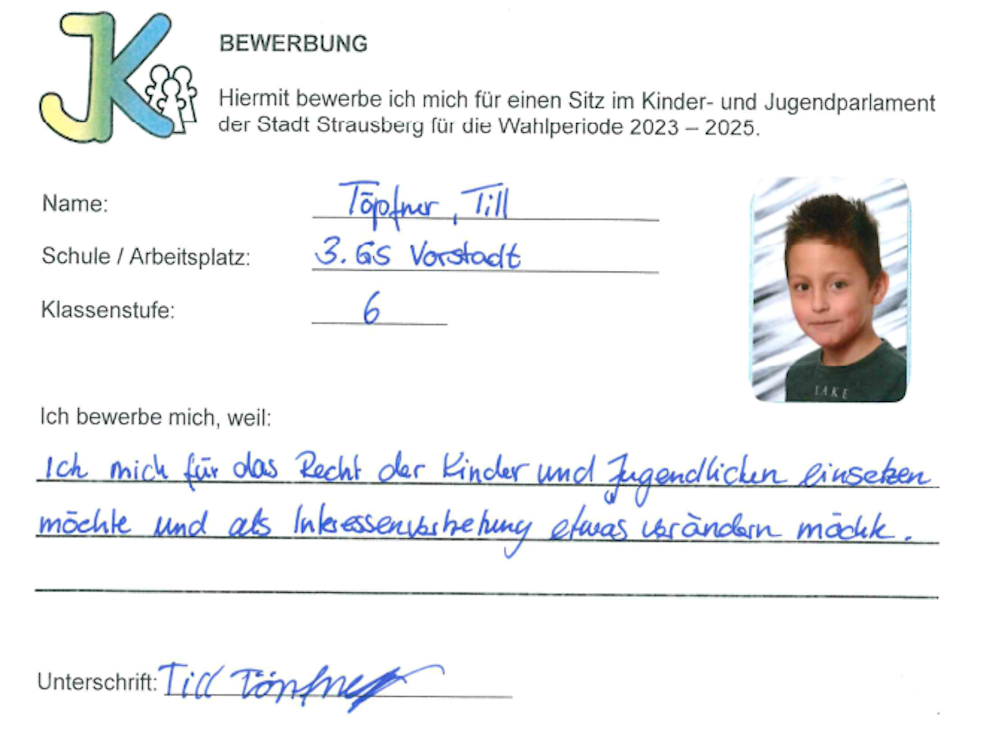 JK
BEWERBUNG
Hiermit bewerbe ich mich für einen Sitz im Kinder- und Jugendparlament
der Stadt Strausberg für die Wahlperiode 2023 – 2025.
Name: Töpfner, Till
Schule / Arbeitsplatz: 3. GS Vorstadt
Klassenstufe: 6
LAKE
Ich bewerbe mich, weil:
Ich mich für das Recht der Kinder und Jugendlichen einsetzen
möchte und als Interessenvertretung etwas verändern möchte.
Unterschrift: Till Töpfner